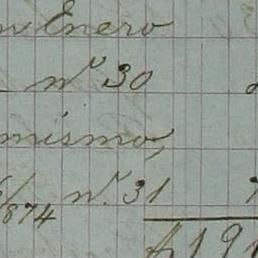 Enero
nº 30
mismo,
/874 nº. 31
$ 191